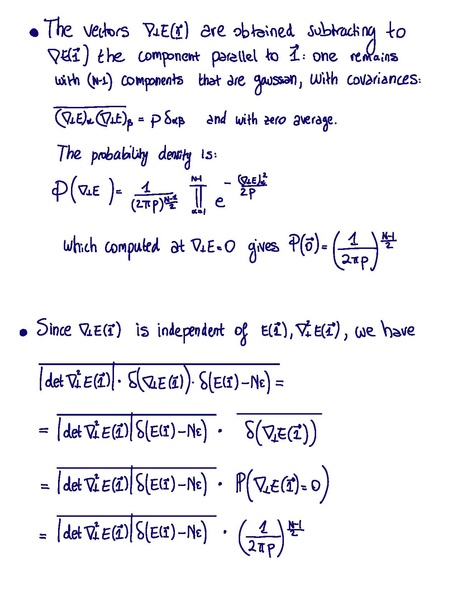 • The vectors ∇⊥E(1⃗) are obtained subtracting to
∇E(1⃗) the component parallel to 1⃗: one remains
with (N-1) components that are gaussian, with covariances:
\overline{(∇⊥E)_α (∇⊥E)_β} = p δ_{αβ} and with zero average.
The probability density is:
P(∇⊥E) = \frac{1}{(2πp)^{\frac{N-1}{2}}} \prod_{α=1}^{N-1} e^{-\frac{(∇⊥E)_α^2}{2p}}
which computed at ∇⊥E=0 gives P(0⃗) = \left(\frac{1}{2πp}\right)^{\frac{N-1}{2}}
• Since ∇⊥E(1⃗) is independent of E(1⃗), ∇⊥²E(1⃗), we have
\overline{|det ∇⊥²E(1⃗)| · δ(∇⊥E(1⃗)) · δ(E(1⃗)-Nε)} =
= \overline{|det ∇⊥²E(1⃗)| δ(E(1⃗)-Nε)} · \overline{δ(∇⊥E(1⃗))}
= \overline{|det ∇⊥²E(1⃗)| δ(E(1⃗)-Nε)} · P(∇⊥E(1⃗)=0)
= \overline{|det ∇⊥²E(1⃗)| δ(E(1⃗)-Nε)} · \left(\frac{1}{2πp}\right)^{\frac{N-1}{2}}